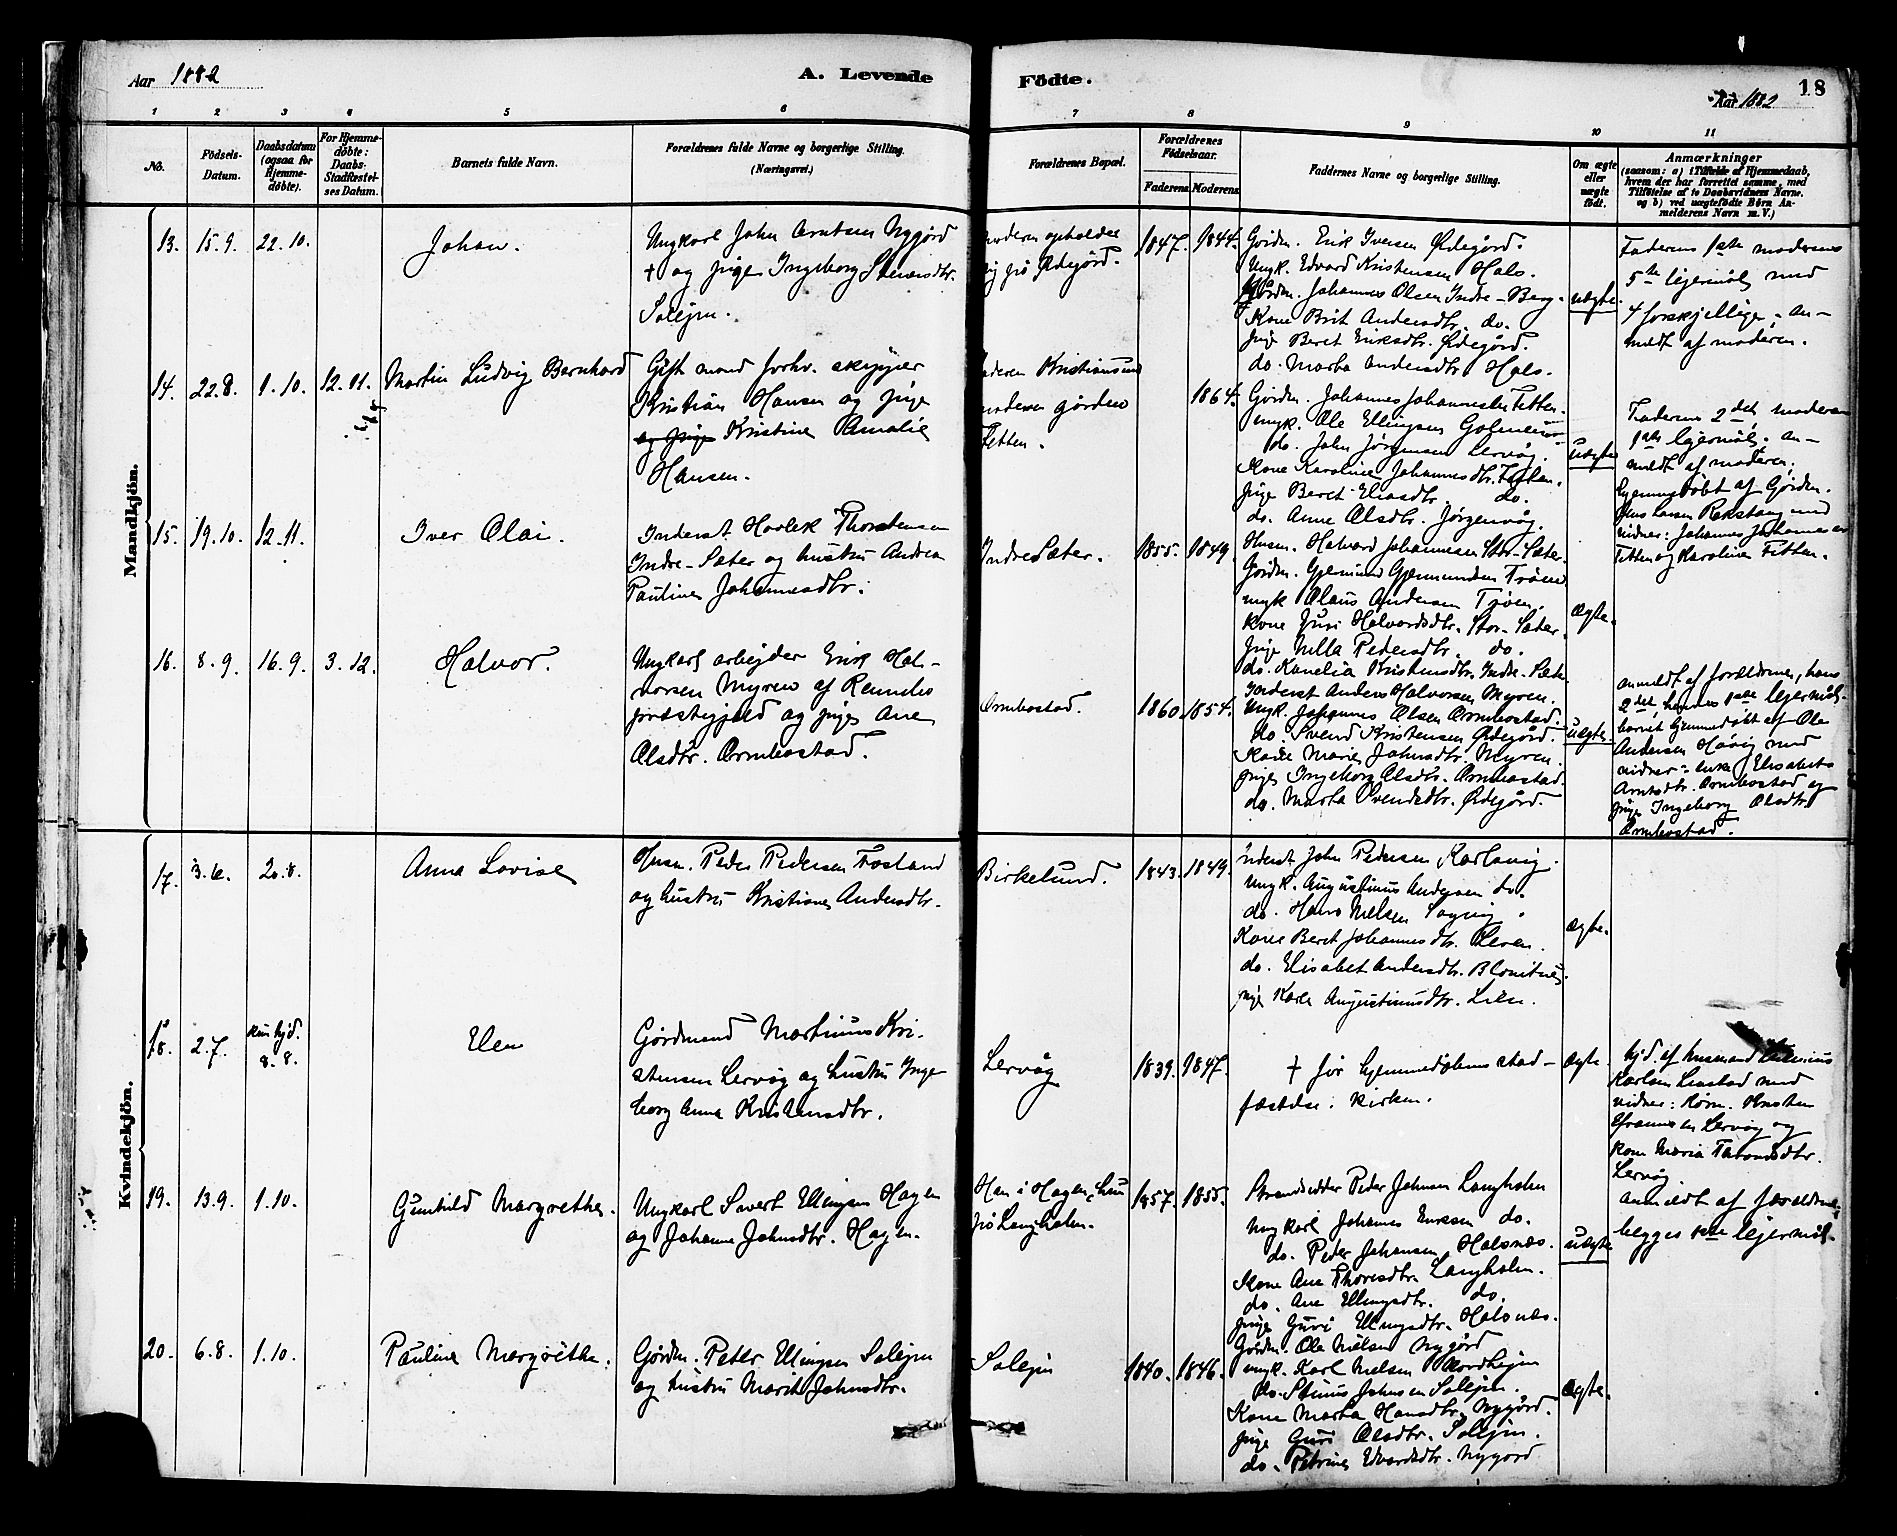 Aar 1882
A. Levende
Födte.
18
Aar 1882
1 2 3 4 5 6 7 8 9 10 11
No.
Födsels-
Datum.
Daabsdatum
(ogsaa for
Hjemme-
döbte).
For Hjemme-
döbte:
Daabs-
Stadfæstel-
ses Datum.
Barnets fulde Navn.
Forældrenes fulde Navne og borgerlige Stilling.
(Næringsvei.)
Forældrenes Bopæl.
Forældrenes
Födselsaar.
Faderens.
Moderens.
Faddernes Navne og borgerlige Stilling.
Om ægte
eller
uægte
födt.
Anmærkninger
(saasom: a) i Tilfælde af Hjemmedaab,
hvem der har forrettet samme, med
Tilföielse af to Daabsvidners Navne.
og b) ved uægtefödte Börn An-
melderens Navn m. V.)
Mandkjön.
13. 15.9. 22.10.
Johan.
Ungkarl John Arntsen Nygård
+ og pige Ingeborg
Solejm.
moderen opholder
sig på Ødegård.
1847. 1844.
Gårdm. Erik Iversen Ødegård.
Ungk. Edvard Kristensen Hals.
Gårdm. Johannes Olsen Indre-Berg.
Kone Brit Andersdtr. do.
pige Beret Eriksdtr. Ødegård.
do. Marta Andersdtr. Hals.
uægte.
Faderens 1ste moderens
5te lejermål med
4 forskjellige. an-
meldt af moderen.
14. 22.8. 1.10. 12.11.
Martin Ludvig Bernhard
Gift mand forhv. skipper
Kristian Hansen og pige
og pige Kristine Amalie
Hansen.
faderen Kristiansund
moderen gården
Fetten.
1864.
Gårdm. Johannes Johannesen Fetten.
ungk. Ole Ellingsen
do. John Jørgensen Lervåg.
Kone Karoline Johannesdtr. Fetten.
pige Beret Eliasdtr. do.
do. Anne Olsdtr. Jørgenvåg.
uægte
Faderens 2det, moderens
1ste lejermål. an-
meldt af moderen.
hjemmedøbt af Gårdm.
Jens Larsen Rekstang med
vidner: Johannes Johannesen
Fetten og Karoline Fetten.
15. 19.10. 12.11.
Iver Olai.
Inderst Thorstensen
Indre-Sæter og hustru Andrea
Pauline Johannesdtr.
Indre Sæter.
1855. 1849.
Husm. Halvard Johannesen Stor-Sæter.
Gårdm. Gjermund Gjermundsen
ungk Olaus Andersen
kone Guri Halvordsdtr. Stor-Sæter.
pige Nilla Pedersdtr. do.
do. Kanelia Kristensdtr. Indre-Sæt.
ægte.
16. 8.9. 16.9. 3.12.
Halvor.
Ungkarl arbejder Erik Hal-
vorsen Myren af Rennebo
præstegjeld og pige Ane
Olsdtr. Ormbostad.
Ormbostad.
1860. 1854.
Inderst Anders Halvorsen Myren.
Ungk. Johannes Olsen Ormbostad.
do. Svend Kristensen Ødegård.
Kone Marie Johnsdtr. Myren.
pige Ingeborg Olsdtr. Ormbostad.
do. Marta Svendsdtr. Ødegård.
uægte.
anmeldt af forældrene, hans
2det hendes 1ste lejermål.
barnet hjemmedøbt af Ole
Andersen Håvig med
vidner: enke Elisabet
Arntsdtr. Ormbostad og
pige Ingeborg Olsdtr.
Ormbostad.
Kvindekjön.
17. 3.6. 20.8.
Anna Lovise
Husm. Peder Pedersen
og hustru Kristiane Andersdtr.
Birkelund.
1843. 1849.
Inderst John Pedersen Karlsvig.
Ungk. Augustinus Andersen do.
do. Hans Nielsen
Kone Beret Johannesdtr.
do. Elisabet Andersdtr.
pige Karen Augustinusdtr. Lien.
ægte.
18. 2.7. kun hjd.
8.8.
Elen
Gårdmand Martinus Kri-
stensen Lervåg og hustru Inge-
borg Anna Kristensdtr.
Lervåg
1839. 1847.
† før hjemmedåbens stad-
fæstelse i kirken.
ægte
hjd. af husmand
Karlsen Leastad med
vidner:
Lervåg og
kone Maria
Lervåg.
19. 13.9. 1.10.
Gunhild Margrethe.
Ungkarl Sivert Ellingsen Hagen
og Johanna Johnsdtr. Hagen.
Han i Hagen, hun
på Langholm.
1857. 1855.
Strandsidder Peder Johnsen Langholm
Ungkarl Johannes do.
do. Peder Johansen Halsnæs.
Kone Ane Thoresdtr. Langholm.
do. Ane Ellingsdtr. do.
pige Guri Ellingsdtr. Halsnæs.
uægte
Anmeldt af forældrene,
begges 1ste lejermål.
20. 6.8. 1.10.
Pauline Margrethe.
Gårdm. Peter Ellingsen Solejm
og hustru Marit Johnsdtr.
Solejm
1840. 1846.
Gårdm. Ole Nielsen Nygård
ungk. Karl Nielsen Nordhejm
do. Johnsen Solejm.
Kone Marta Hansdtr. Nygård.
pige Guri Olsdtr. Solejm.
do. Petrine Edvardsdtr. Nygård
ægte.